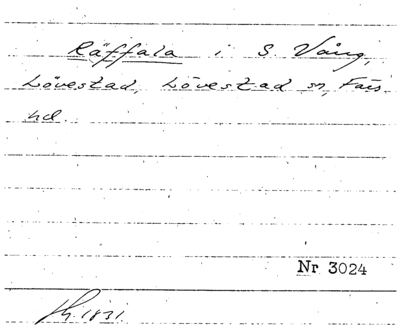 Räffala i S. Vång,
Lövestad, Lövestad sn, Färs
hd.
Nr 3024
1831.